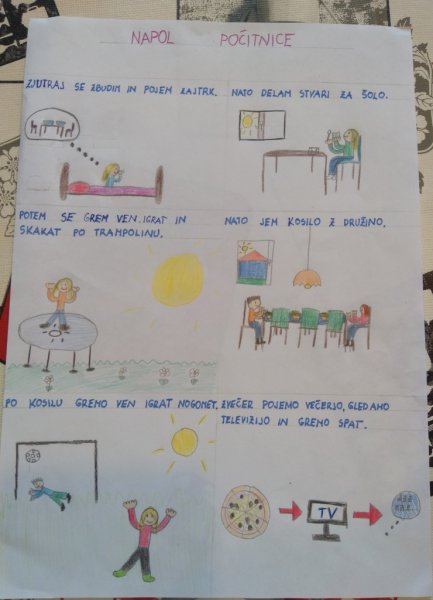 NAPOL POČITNICE
ZJUTRAJ SE ZBUDIM IN POJEM ZAJTRK.
NATO DELAM STVARI ZA ŠOLO.
POTEM SE GREM VEN IGRAT IN
SKAKAT PO TRAMPOLINU.
NATO JEM KOSILO Z DRUŽINO.
PO KOSILU GREMO VEN IGRAT NOGOMET.
ZVEČER POJEMO VEČERJO, GLEDAMO
TELEVIZIJO IN GREMO SPAT.
TV